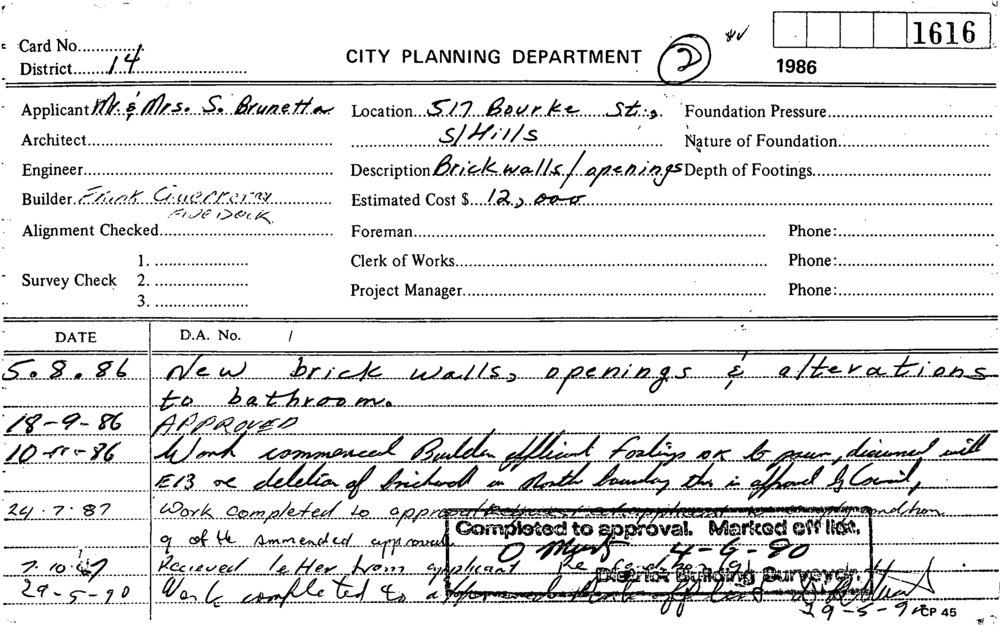 1616
Card No.
District 14
CITY PLANNING DEPARTMENT
2
1986
Applicant Mr. & Mrs. S. Brunetta
Location 517 Bourke St.,
Foundation Pressure
Architect
S/Hills
Nature of Foundation
Engineer
Description Brick walls/openings
Depth of Footings
Builder Frank
Five Dock
Estimated Cost $ 12,000
Alignment Checked
Foreman
Phone:
Survey Check
1.
2.
3.
Clerk of Works
Phone:
Project Manager
Phone:
DATE
D.A. No. /
5.8.86 New brick walls, openings & alterations
to bathroom.
18-9-86 APPROVED
10-11-86 Work commenced Builder Footings OK to pour, discussed with
E13 re deletion of brickwall on North boundary this is approved by Council,
24.7.87 Work completed to condition
9 of the ammended approval
Completed to approval. Marked off list.
4-6-90
District Building Surveyor.
7.10.87 Recieved letter from applicant re
29-5-90 Work completed to
29-5-90
CP 45